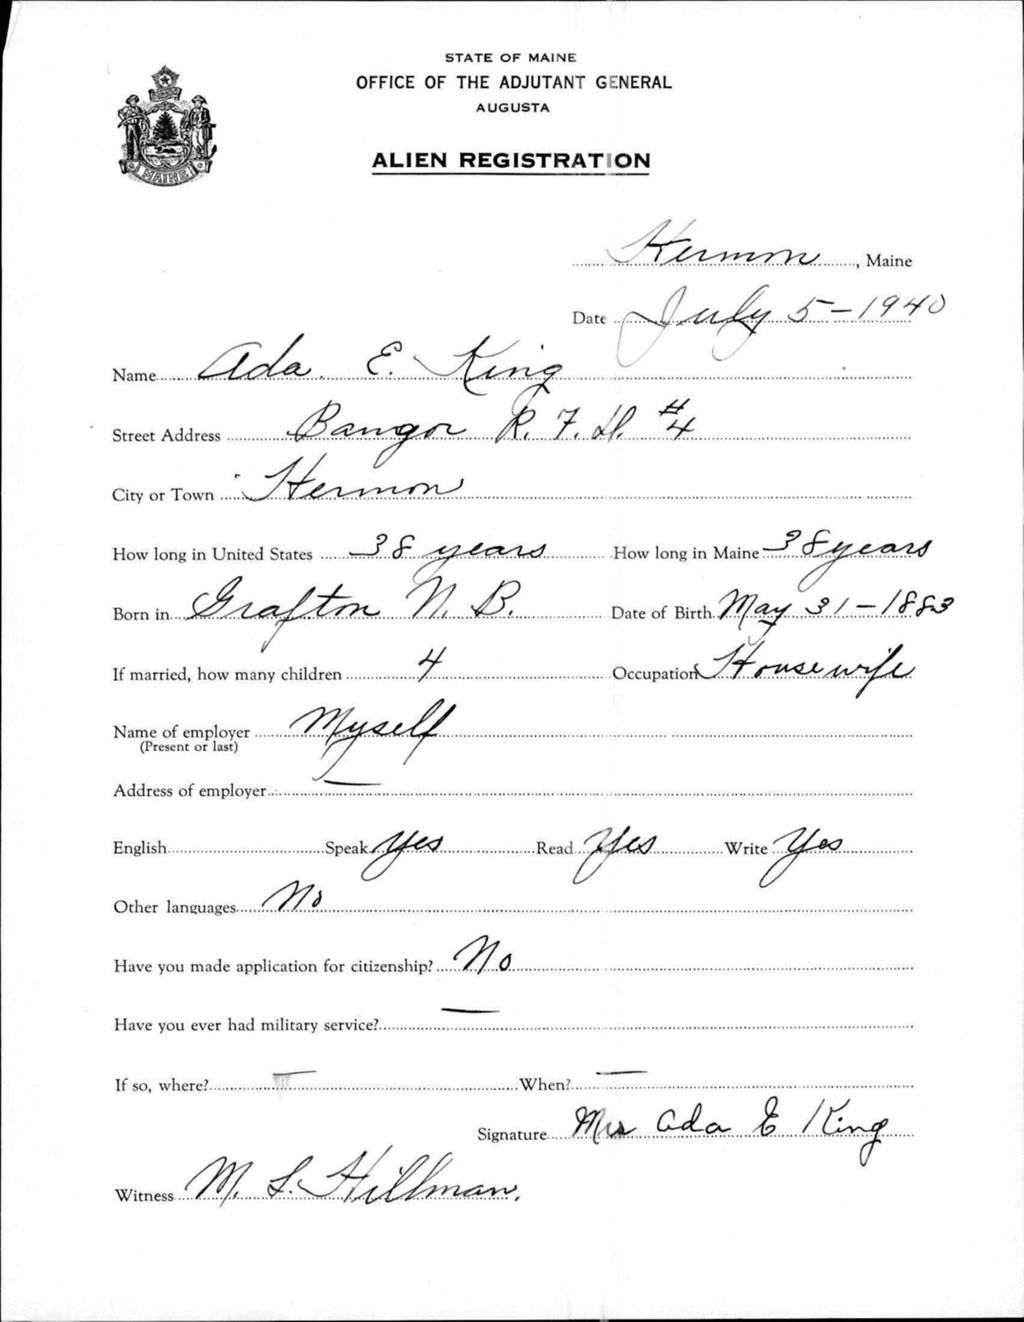 STATE OF MAINE
OFFICE OF THE ADJUTANT GENERAL
AUGUSTA
ALIEN REGISTRATION
MAINE
Hermon, Maine
Date July 5-1940
Name Ada. E. King
Street Address Bangor R. F. D. #4
City or Town Hermon
How long in United States 38 years How long in Maine 38 years
Born in Grafton N. B. Date of Birth May 31-1883
If married, how many children 4 Occupation Housewife
Name of employer Myself
(Present or last)
Address of employer —
English Speak Yes Read Yes Write Yes
Other languages No
Have you made application for citizenship? No
Have you ever had military service? —
If so, where? — When? —
Signature Mrs Ada E King
Witness M. L. Hillman.